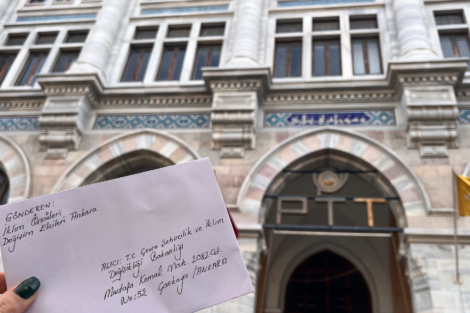 GÖNDEREN:
İklim Öncüleri,
Değişim Elçileri Ankara
ALICI: T.C. Çevre Şehircilik ve İklim
Değişikliği Bakanlığı
Mustafa Kemal Mah. 2082 Cd.
No:52 Çankaya/ANKARA
PTT